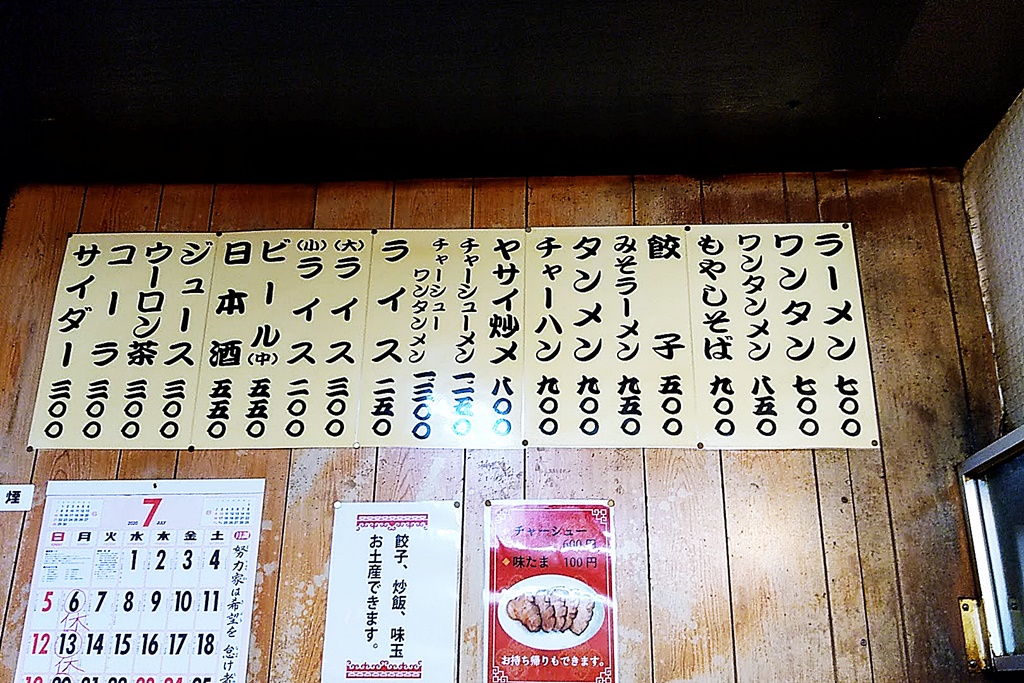 ラーメン 七〇〇
ワンタン 七〇〇
ワンタンメン 八五〇
もやしそば 九〇〇
餃子 五〇〇
みそラーメン 九五〇
タンメン 九〇〇
チャーハン 九〇〇
ヤサイ炒メ 八〇〇
チャーシューメン 一、一五〇
チャーシューワンタンメン 一三〇〇
ライス 二五〇
(大)ライス 三〇〇
(小)ライス 二〇〇
ビール(中) 五五〇
日本酒 五五〇
ジュース 三〇〇
ウーロン茶 三〇〇
コーラ 三〇〇
サイダー 三〇〇
煙
7
2020 JULY
日 月 火 水 木 金 土
1 2 3 4
5 6 7 8 9 10 11
休
12 13 14 15 16 17 18
休
努力家は希望を
怠け者
餃子、炒飯、味玉
お土産できます。
チャーシュー
600円
味たま 100円
お持ち帰りもできます。